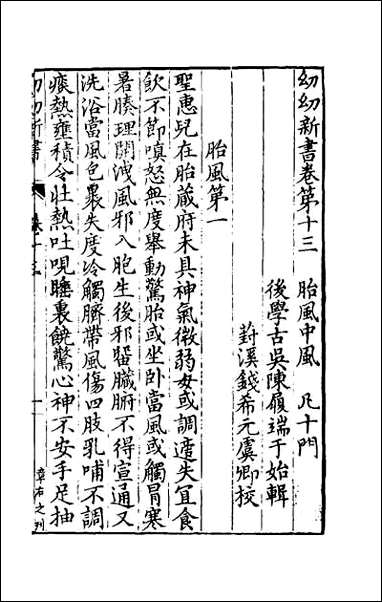 幼幼新書卷第十三　胎風中風　凡十門
後學古吳陳履端于始輯
葑溪錢希元虞卿校
胎風第一
聖惠兒在胎蔵府未具神氣微弱女或調適失冝食
飲不節嗔怒無度舉動驚胎或坐卧當風或觸冐寒
暑腠理開洩風邪入胞生後邪留臟腑不得宣通又
洗浴當風包裹失度冷觸臍帶風傷四肢乳哺不調
痰熱壅積令壯熱吐哯睡裏饒驚心神不安手足抽
幼幼新書
卷十三
一
章右之刋